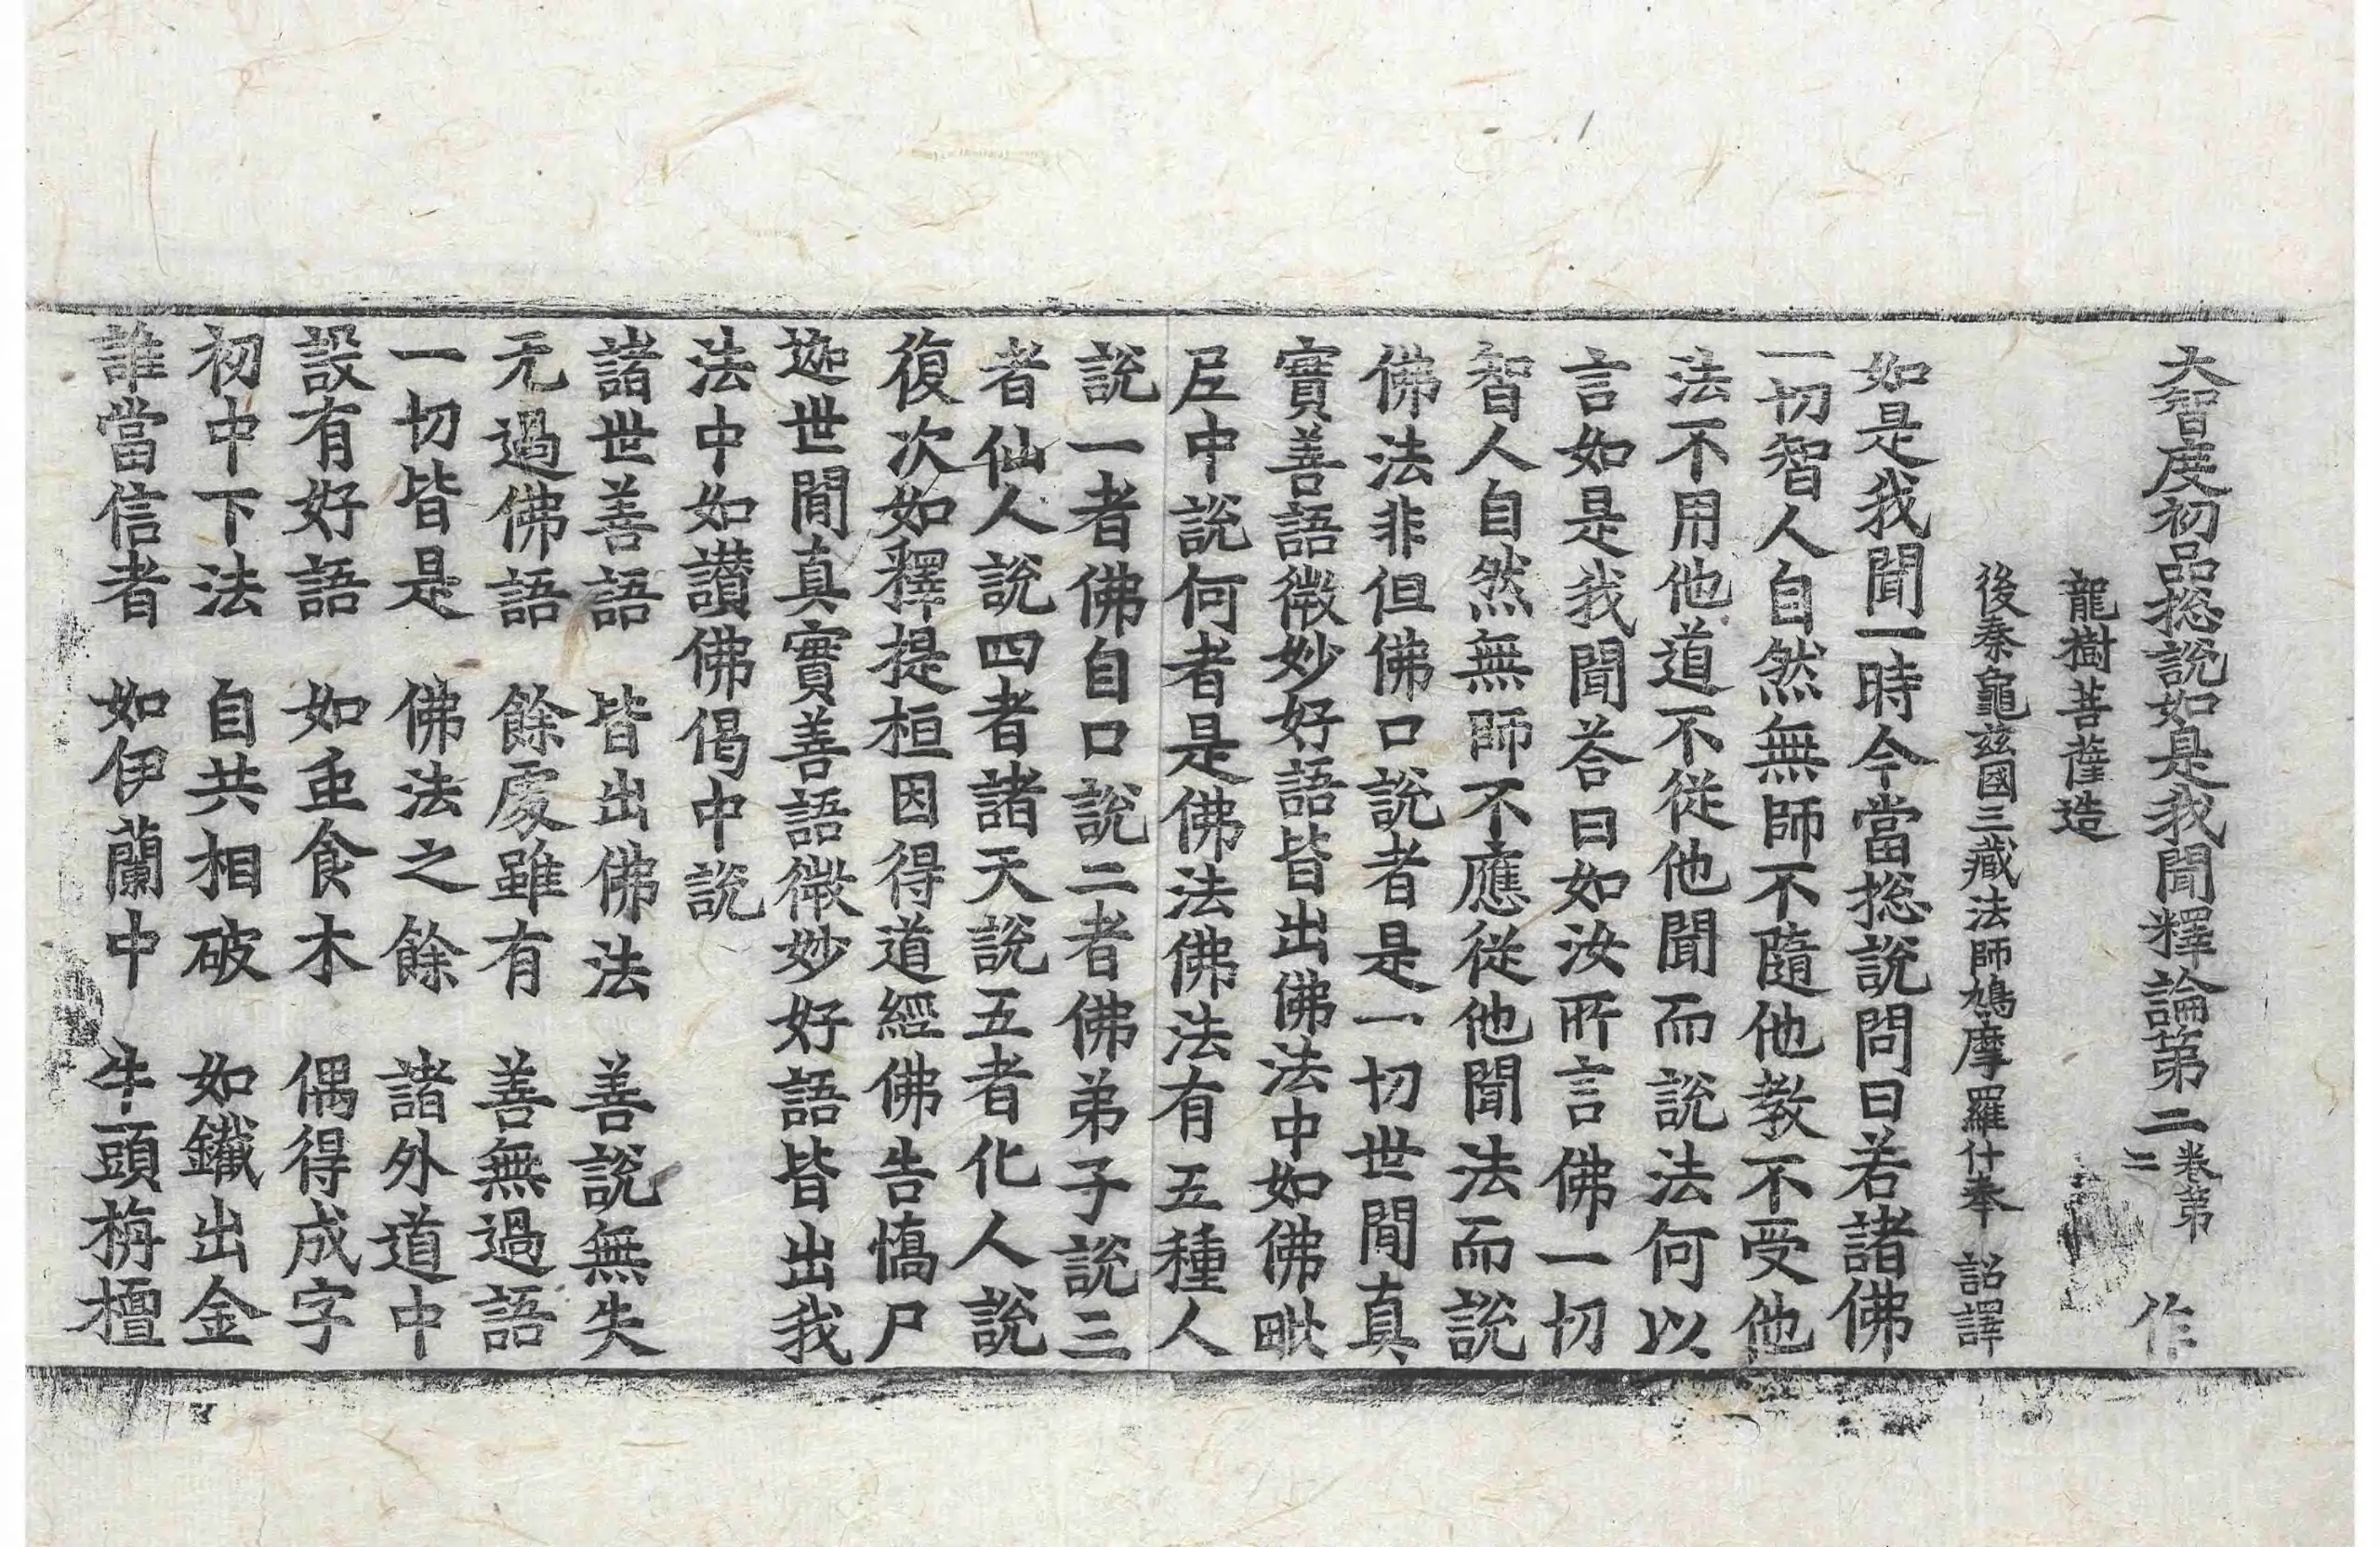 大智度初品揔說如是我聞釋論第二 卷第二 作
龍樹菩薩造
後秦龜茲國三藏法師鳩摩羅什奉 詔譯
如是我聞一時今當揔說問曰若諸佛
一切智人自然無師不隨他教不受他
法不用他道不從他聞而說法何以
言如是我聞荅曰如汝所言佛一切
智人自然無師不應從他聞法而說
佛法非但佛口說者是一切世間真
實善語微妙好語皆出佛法中如佛毗
尼中說何者是佛法佛法有五種人
說一者佛自口說二者佛弟子說三
者仙人說四者諸天說五者化人說
復次如釋提桓因得道經佛告憍尸
迦世間真實善語微妙好語皆出我
法中如讚佛偈中說
諸世善語 皆出佛法 善說無失
无過佛語 餘處雖有 善無過語
一切皆是 佛法之餘 諸外道中
設有好語 如虫食木 偶得成字
初中下法 自共相破 如鐵出金
誰當信者 如伊蘭中 牛頭栴檀